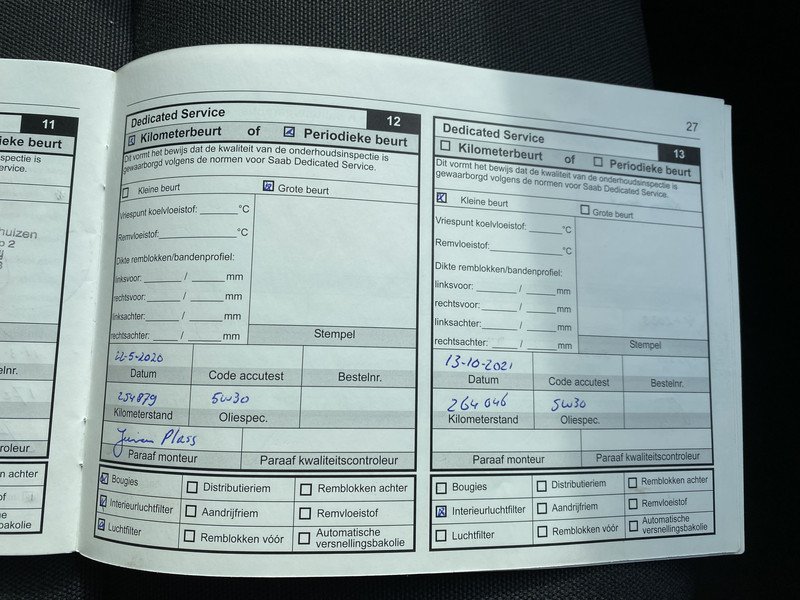 11
odieke beurt
nspectie is
ervice.
huizen
o 2
elnr.
roleur
n achter
of
e
bakolie
Dedicated Service
12
Kilometerbeurt of Periodieke beurt
Dit vormt het bewijs dat de kwaliteit van de onderhoudsinspectie is
gewaarborgd volgens de normen voor Saab Dedicated Service.
Kleine beurt Grote beurt
Vriespunt koelvloeistof: °C
Remvloeistof: °C
Dikte remblokken/bandenprofiel:
linksvoor: / mm
rechtsvoor: / mm
linksachter: / mm
rechtsachter: / mm
Stempel
22-5-2020
Datum Code accutest Bestelnr.
254879 5w30
Kilometerstand Oliespec.
Plass
Paraaf monteur Paraaf kwaliteitscontroleur
Bougies Distributieriem Remblokken achter
Interieurluchtfilter Aandrijfriem Remvloeistof
Luchtfilter Remblokken vóór Automatische
versnellingsbakolie
27
Dedicated Service
13
Kilometerbeurt of Periodieke beurt
Dit vormt het bewijs dat de kwaliteit van de onderhoudsinspectie is
gewaarborgd volgens de normen voor Saab Dedicated Service.
Kleine beurt Grote beurt
Vriespunt koelvloeistof: °C
Remvloeistof: °C
Dikte remblokken/bandenprofiel:
linksvoor: / mm
rechtsvoor: / mm
linksachter: / mm
rechtsachter: / mm
Stempel
13-10-2021
Datum Code accutest Bestelnr.
264046 5w30
Kilometerstand Oliespec.
Paraaf monteur Paraaf kwaliteitscontroleur
Bougies Distributieriem Remblokken achter
Interieurluchtfilter Aandrijfriem Remvloeistof
Luchtfilter Remblokken vóór Automatische
versnellingsbakolie